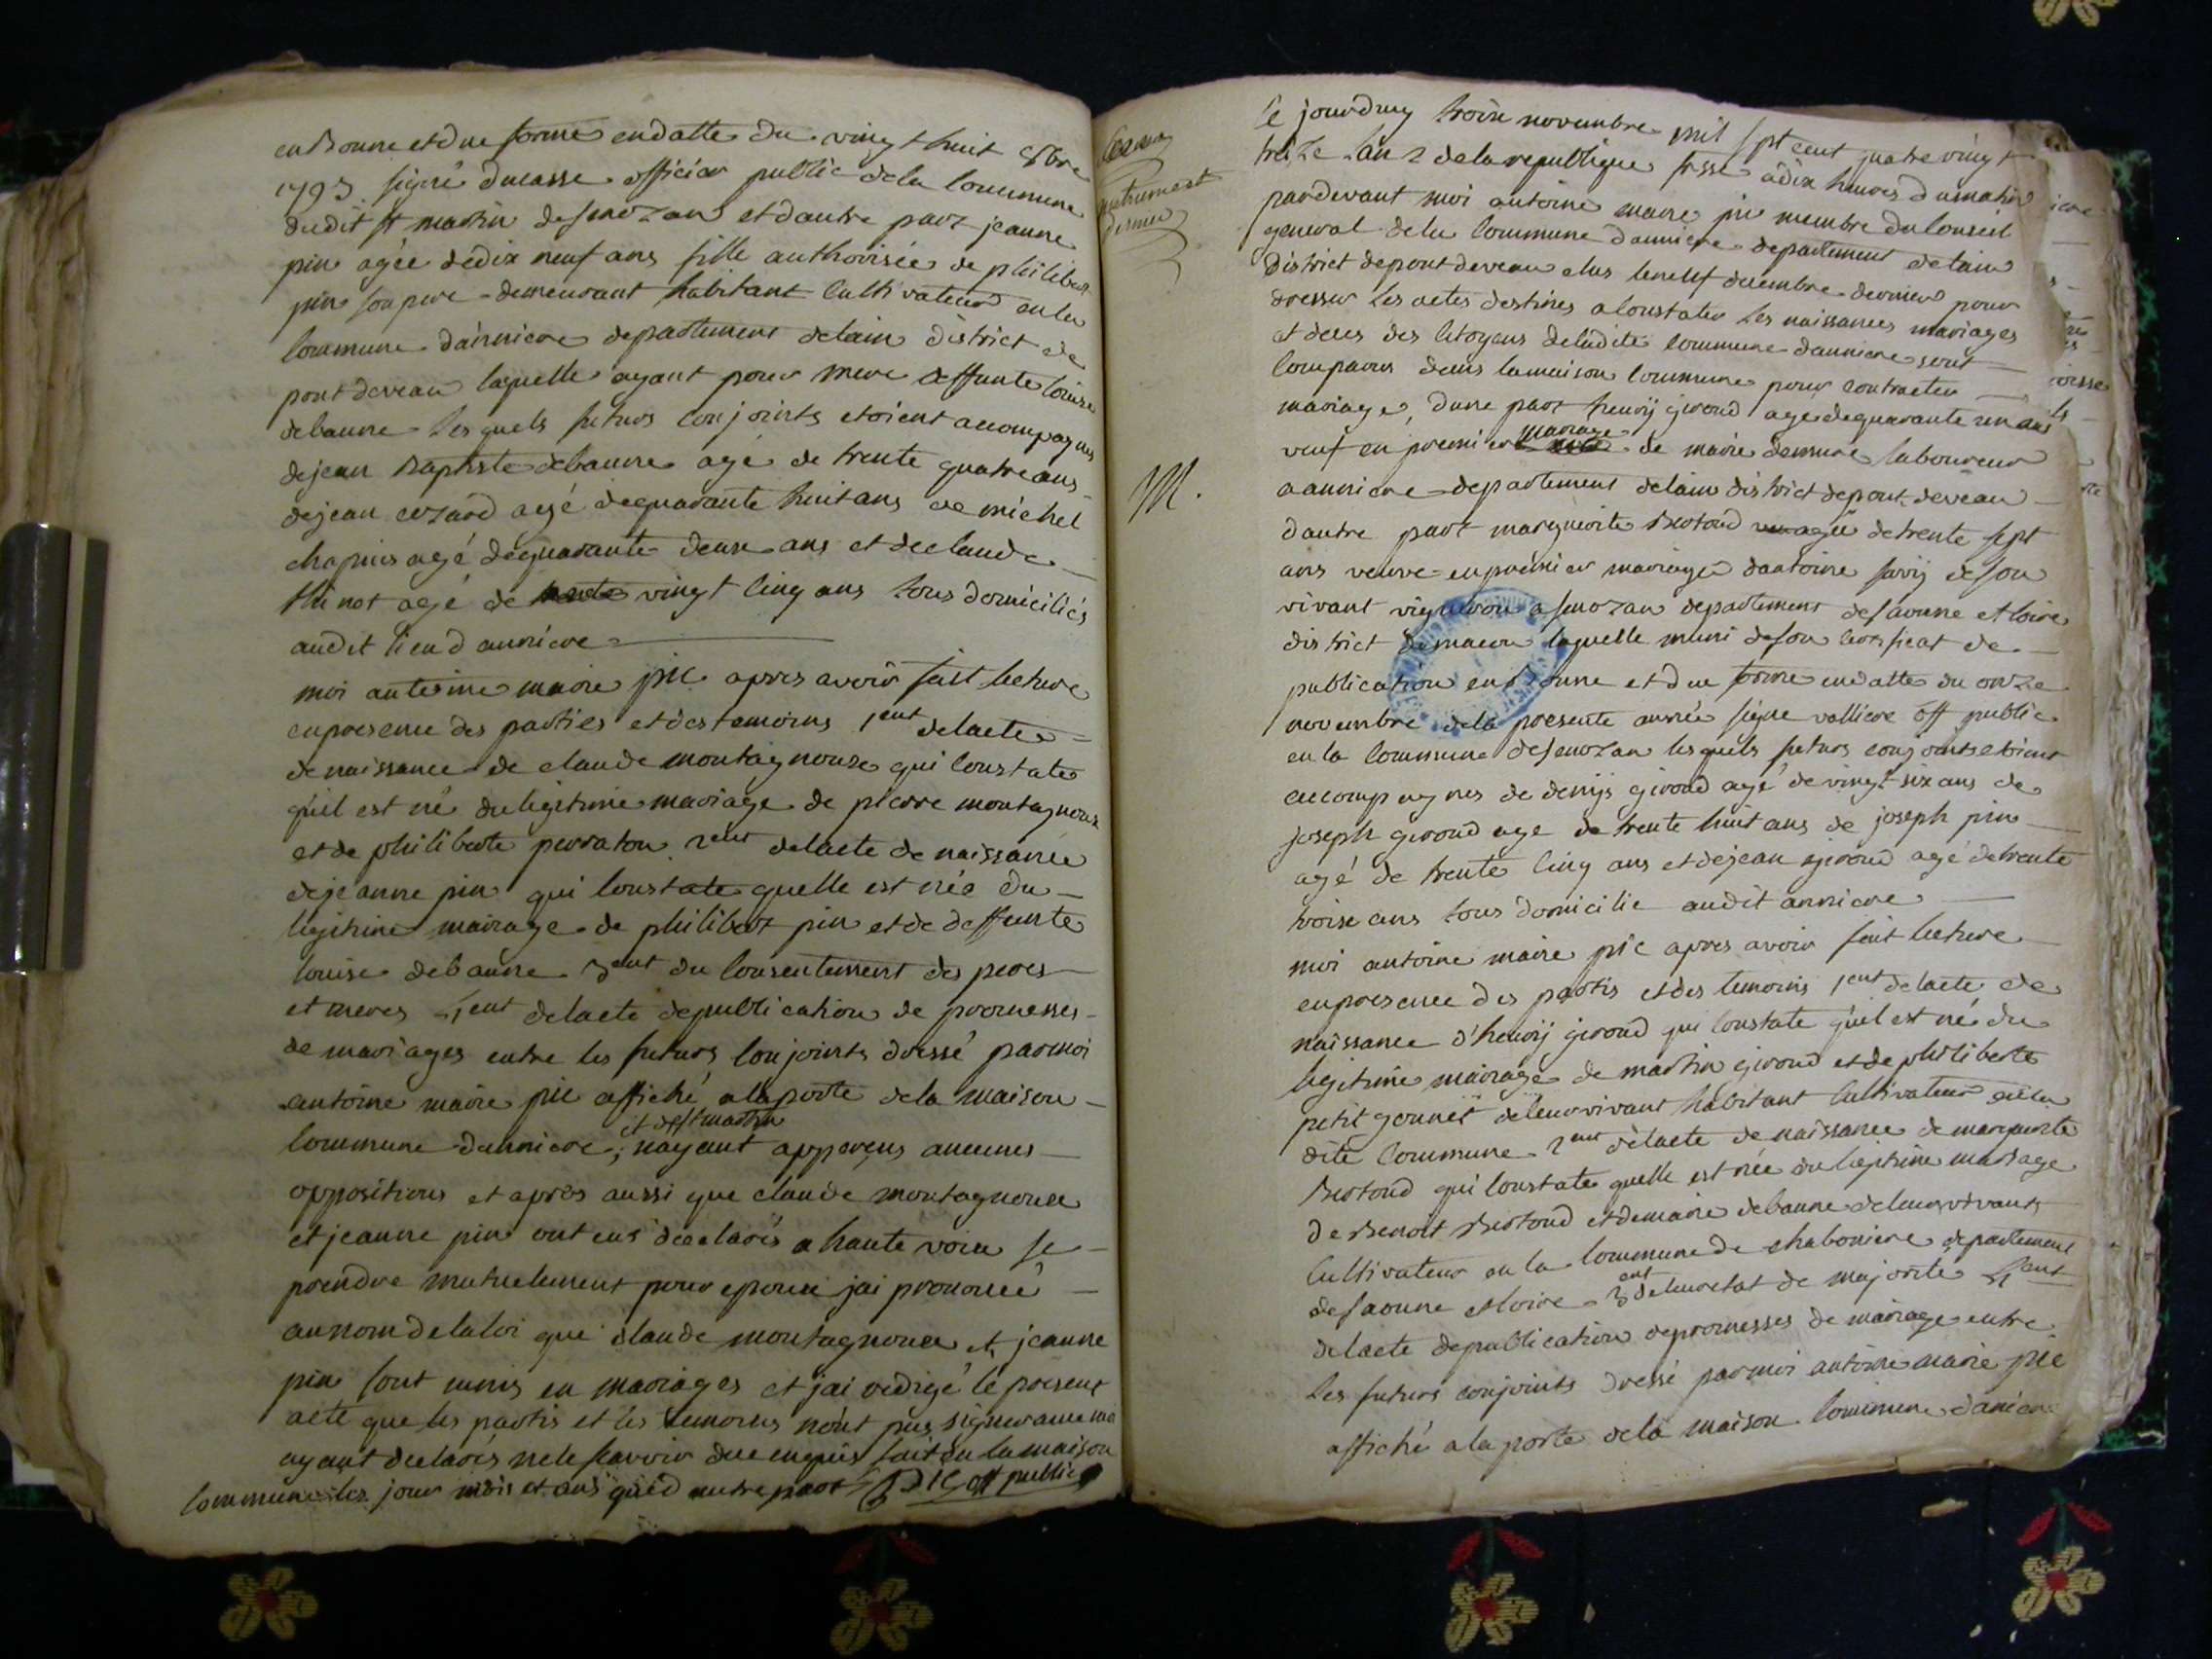 en Bonne et due forme en datte du vingt huit 8bre
1793 signé ducasse officier public de la Commune
dudit st martin de senozan et dautre part jeanne
pin agée de dix neuf ans fille authorisée de philibert
pin son pere demeurant habitant Cultivateur en la
Commune danniere departement delain district de
pont deveau laquelle ayant pour mere deffunte louise
debanne les quels futurs Conjoints etoient accompagnes
de jean Baptiste debanne agé de trente quatre ans
de jean cozard agé de quarante huit ans de michel
chapuis agé de quarante deux ans et de claude
thinot agé de vingt Cinq ans tous domiciliés
audit lieu danniere
moi antoine maire pic apres avoir fait lecture
en presence des parties et des temoins 1ent de lacte
de naissance de claude montagnoux qui Constate
quil est né du legitime mariage de pierre montagnoux
et de philiberte perraton 2ent de lacte de naissance
de jeanne pin qui Constate quelle est née du
legitime mariage de philibert pin et de deffunte
louise debanne 3ent du Consentement des peres
et meres 4ent de lacte de publication de promesses
de mariages entre les futurs Conjoints dressé par moi
antoine maire pic affiché a la porte de la maison
et de st martin
Commune danniere, nayant apperçus aucunes
oppositions et apres aussi que claude montagnoux
et jeanne pin ont eus declarés a haute voix se
prendre mutuelement pour epoux jai prononcé
au nom de la loi que claude montagnoux et jeanne
pin sont unis en mariages et jai redigé le present
acte que les partis et les temoins nont pus signer avec moi
ayant declarés ne le scavoir de ce enquis fait en la maison
Commune les jour mois et ans que d autre part PIC off public
M.
Ce jourduy troise novembre mil sept cent quatre vingt
treize lan 2 de la republique fsse a dix heures du matin
pardevant moi antoine maire pic membre du Conseil
general de la Commune danniere departement delain
District de pont deveau elus le neuf decembre dernier pour
dresser les actes destines a Constater les naissances mariages
et deces des Citoyens de ladite Commune danniere sont
Comparus dans la maison Commune pour contracter
mariage, dune part henrij giroud agé de quarante un ans
mariage
veuf en premier de marie demure laboureur
a anniere departement delain district de pont deveau
dautre part marguerite Bertoud agée de trente sept
ans veuve en premier mariage dantoine savij de son
vivant vigneron a senozan departement de saonne et loire
district de macon laquelle muni de son certificat de
publication en Bonne et due forme en datte du onze
novembre de la presente année signe valliere off public
en la Commune de senozan lesquels futurs conjoints etoient
accompagnes de denijs giroud agé de vingt six ans de
joseph giroud age de trente huit ans de joseph pin
agé de trente Cinq ans et de jean giroud agé de trente
troise ans tous domicilie audit anniere
moi antoine maire pic apres avoir fait lecture
en presence des partis et des temoins 1ent de lacte de
naissance d'henrij giroud qui Constate quil est né du
legitime mariage de martin giroud et de philiberte
petit jounet de leur vivant habitant Cultivateur en la
dite Commune 2ent de lacte de naissance de marguerite
Bertoud qui Constate quelle est née du legitime mariage
de Benoit Bertoud et de marie debanne de leur vivant
Cultivateur en la Commune de chaboniere departement
de saonne et loire 3ent de leur etat de majorité 4ent
de lacte de publication de promesses de mariage entre
les futurs conjoints dressé par moi antoine maire pic
affiché a la porte de la maison Commune daniere